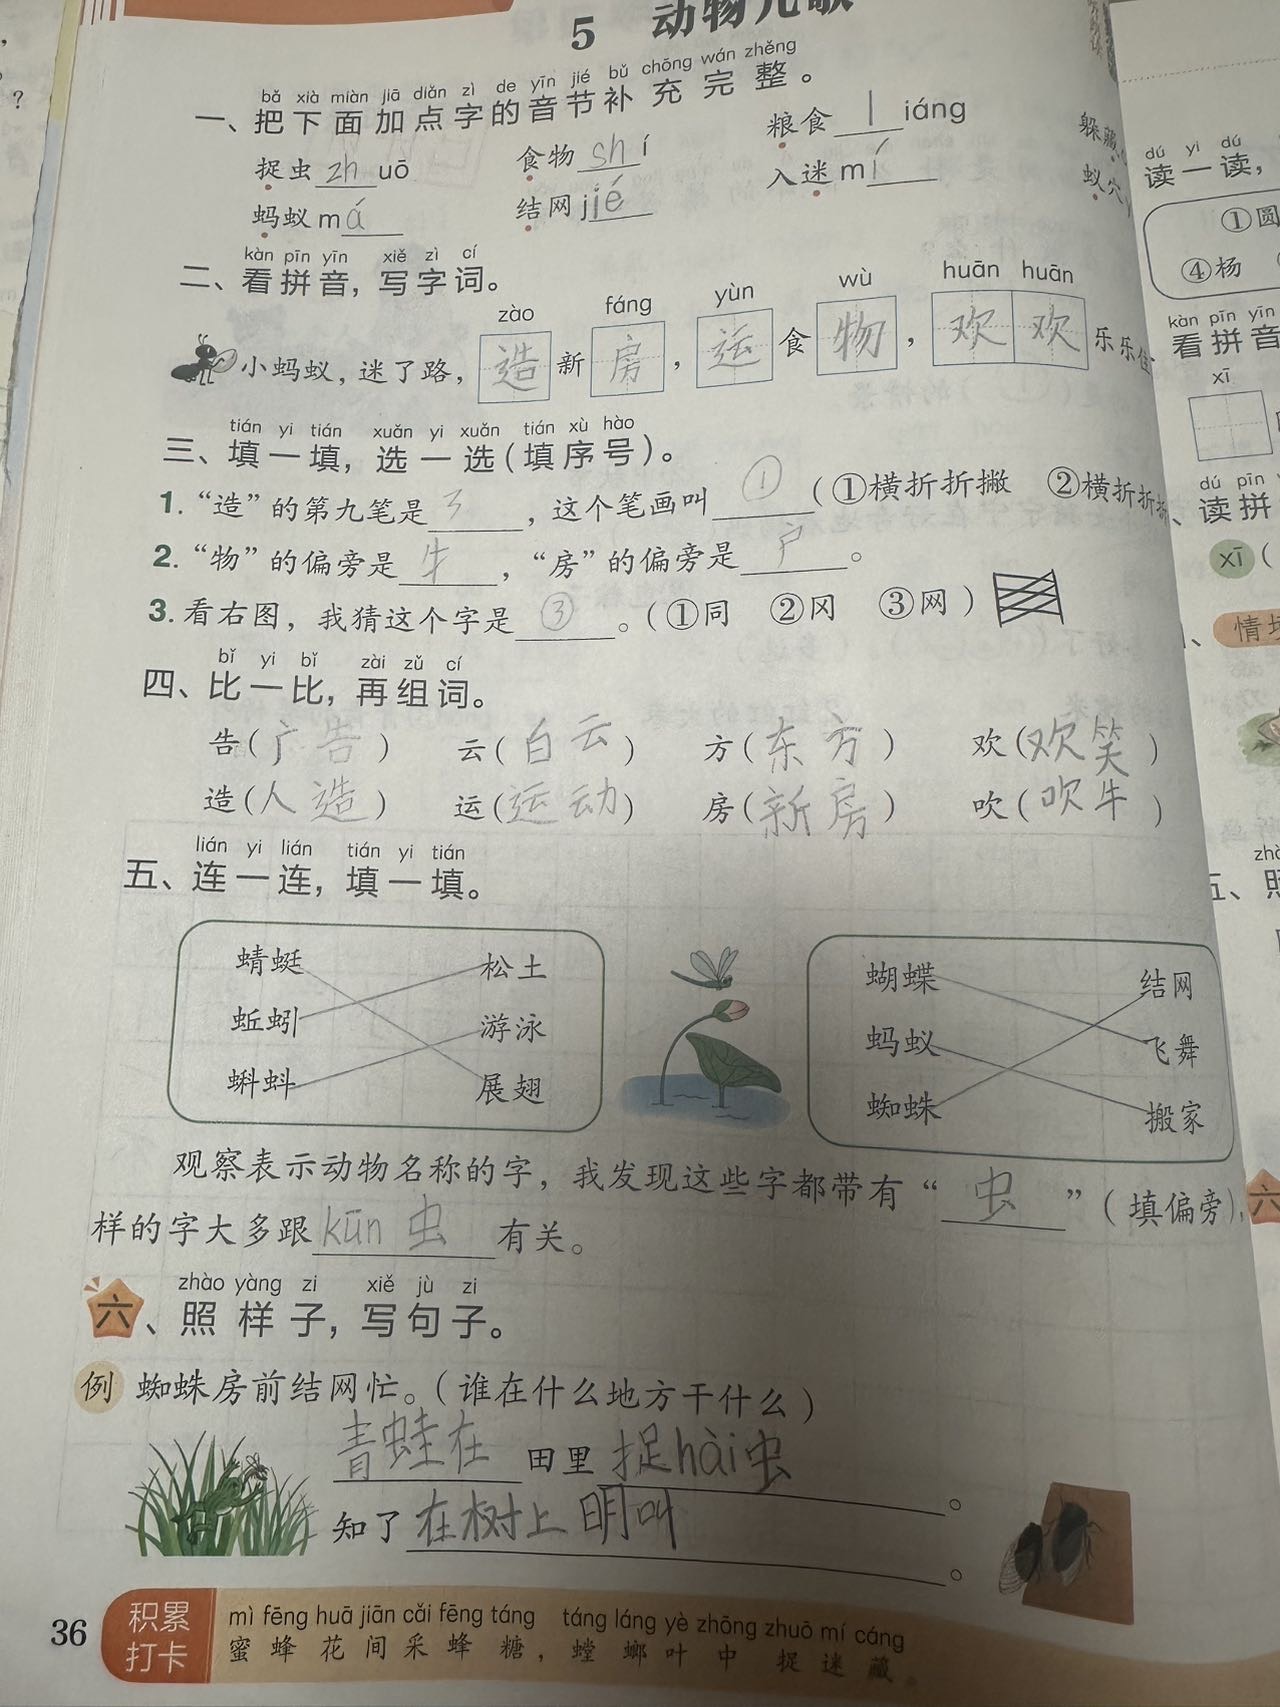 5 动物儿歌
bǎ xià miàn jiā diǎn zì de yīn jié bǔ chōng wán zhěng
一、把下面加点字的音节补充完整。
捉虫 zhuō 食物 shí 粮食 liáng 躲藏
蚂蚁 mǎ 结网 jjié 入迷 mí 蚁穴
kàn pīn yīn xiě zì cí
二、看拼音，写字词。
zào fáng yùn wù huān huān
小蚂蚁，迷了路，造新房，运食物，欢欢乐乐住
tián yi tián xuǎn yi xuǎn tián xù hào
三、填一填，选一选（填序号）。
1. “造”的第九笔是，这个笔画叫①（①横折折撇 ②横折折折
2. “物”的偏旁是牜，“房”的偏旁是户。
3. 看右图，我猜这个字是③。（①同 ②冈 ③网）
bǐ yi bǐ zài zǔ cí
四、比一比，再组词。
告（广告） 云（白云） 方（东方） 欢（欢笑）
造（人造） 运（运动） 房（新房） 吹（吹牛）
lián yi lián tián yi tián
五、连一连，填一填。
蜻蜓 松土 蝴蝶 结网
蚯蚓 游泳 蚂蚁 飞舞
蝌蚪 展翅 蜘蛛 搬家
观察表示动物名称的字，我发现这些字都带有“虫”（填偏旁），
样的字大多跟kūn虫有关。
zhào yàng zi xiě jù zi
六、照样子，写句子。
例 蜘蛛房前结网忙。（谁在什么地方干什么）
青蛙在田里捉hài虫。
知了在树上明叫。
36 积累打卡
mì fēng huā jiān cǎi fēng táng táng láng yè zhōng zhuō mí cáng
蜜蜂花间采蜂糖，螳螂叶中捉迷藏。
dú yi dú
读一读，
①圆
④杨
kàn pīn yīn
看拼音
xī
dú pīn
、读拼
xī（
、情
zhà
五、照
六